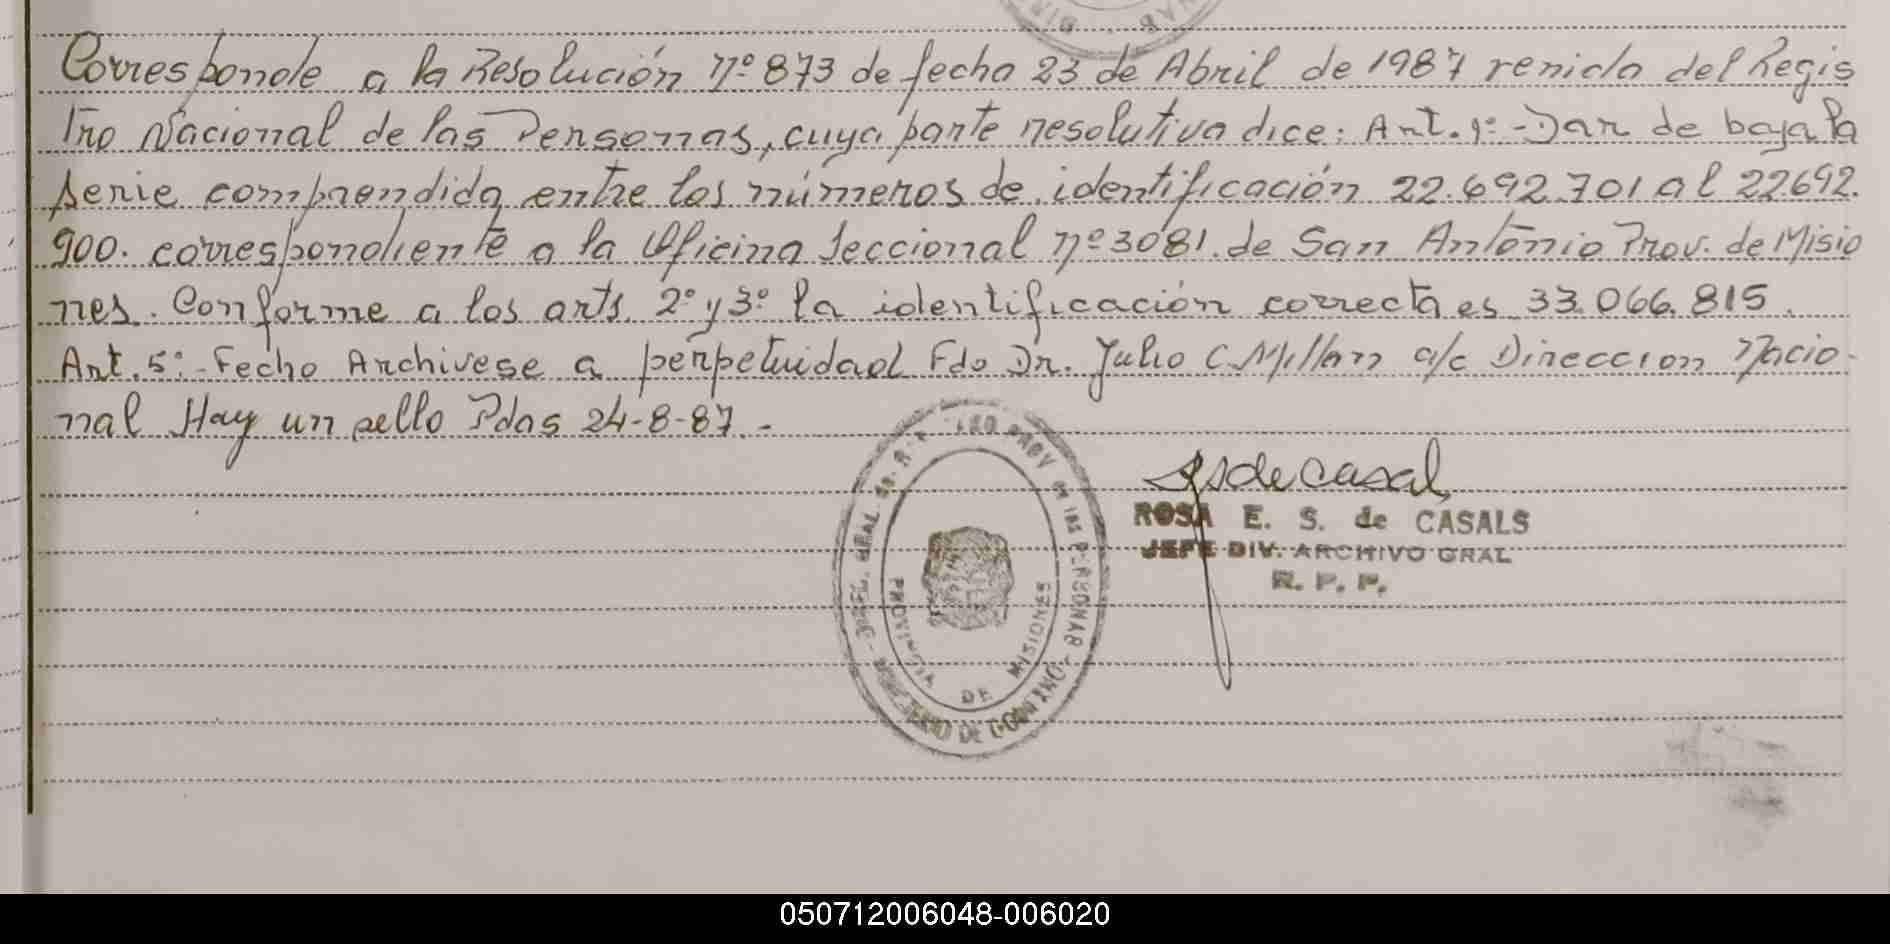 Corresponde a la Resolución nº 873 de fecha 23 de Abril de 1987 renida del Regis
tro Nacional de las Personas, cuya parte resolutiva dice: Art. 1º - Dar de baja la
serie comprendida entre los números de identificación 22.692.701 al 22692.
900. correspondiente a la Oficina Seccional nº 3081. de San Antonio Prov. de Misio
nes. Conforme a los arts. 2º y 3º la identificación correcta es 33.066.815.
Art. 5: - Fecho Archivese a perpetuidad Fdo Dr. Julio C Millan a/c Direccion Nacio-
nal Hay un sello Pdas 24-8-87.-
ROSA E. S. de CASALS
JEFE DIV. ARCHIVO GRAL
R. P. P.
PROV DE LAS PERSONAS
DE GOBIERNO
PROVINCIA DE MISIONES
050712006048-006020